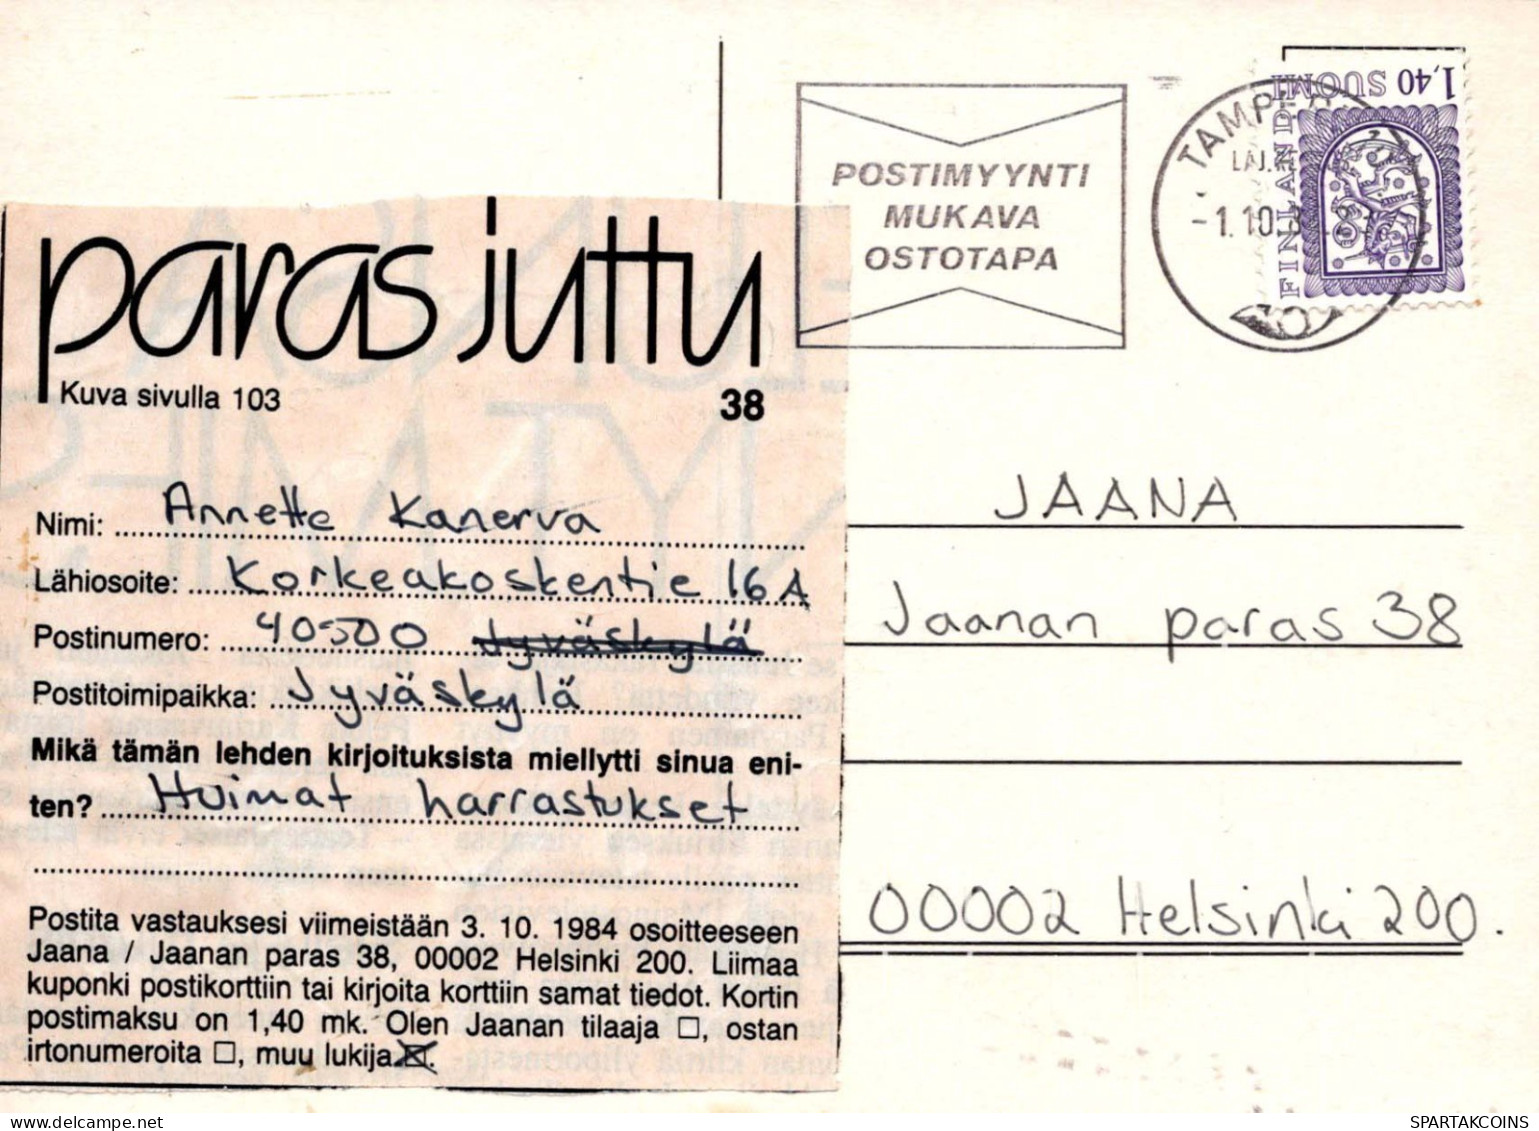 paras juttu
Kuva sivulla 103
38
Nimi: Annette Kanerva
Lähiosoite: Korkeakoskentie 16 A
Postinumero: 40500 Jyväskylä
Postitoimipaikka: Jyväskylä
Mikä tämän lehden kirjoituksista miellytti sinua eni-
ten? Huimat harrastukset
Postita vastauksesi viimeistään 3. 10. 1984 osoitteeseen
Jaana / Jaanan paras 38, 00002 Helsinki 200. Liimaa
kuponki postikorttiin tai kirjoita korttiin samat tiedot. Kortin
postimaksu on 1,40 mk. Olen Jaanan tilaaja ☐, ostan
irtonumeroita ☐, muu lukija ☒.
POSTIMYYNTI
MUKAVA
OSTOTAPA
-1.10.8
1,40 SUOMI
FINLAND
JAANA
Jaanan paras 38
00002 Helsinki 200.
SPARTAKCOINS